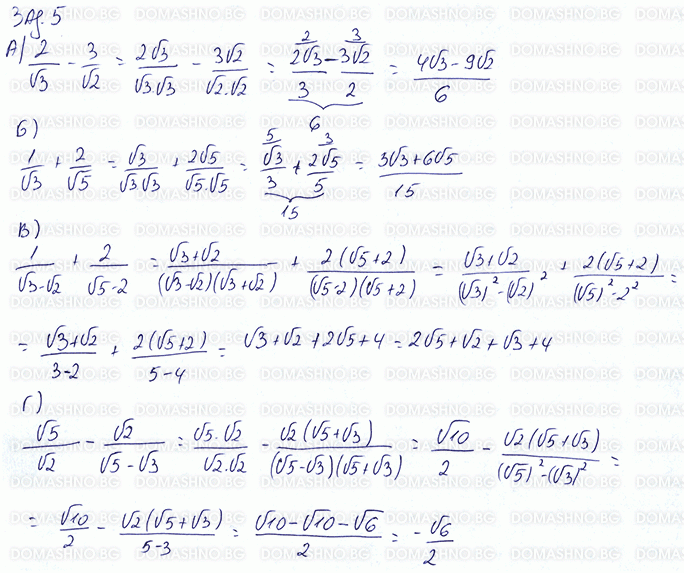 Зад. 5
А) 2/√3 - 3/√2 = 2√3/√3.√3 - 3√2/√2.√2 = 2 2√3/3 - 3 3√2/2 = 4√3 - 9√2/6
6
Б)
1/√3 + 2/√5 = √3/√3√3 + 2√5/√5.√5 = 5 √3/3 + 3 2√5/5 = 3√3+6√5/15
15
В)
1/√3-√2 + 2/√5-2 = √3+√2/(√3-√2)(√3+√2) + 2(√5+2)/(√5-2)(√5+2) = √3+√2/(√3)²-(√2)² + 2(√5+2)/(√5)²-2² =
= √3+√2/3-2 + 2(√5+2)/5-4 = √3+√2+2√5+4 = 2√5+√2+√3+4
Г)
√5/√2 - √2/√5-√3 = √5.√2/√2.√2 - √2(√5+√3)/(√5-√3)(√5+√3) = √10/2 - √2(√5+√3)/(√5)²-(√3)² =
= √10/2 - √2(√5+√3)/5-3 = √10-√10-√6/2 = -√6/2